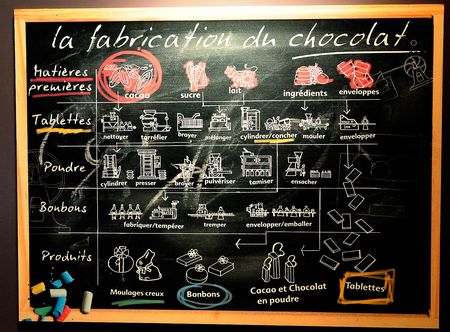 la fabrication du chocolat
Matières premières
cacao sucre lait ingrédients enveloppes
Tablettes
nettoyer torréfier broyer mélanger cylindrer/concher mouler envelopper
Poudre
cylindrer presser broyer pulvériser tamiser ensacher
Bonbons
fabriquer/tempérer tremper envelopper/emballer
Produits
Moulages creux Bonbons Cacao et Chocolat en poudre Tablettes